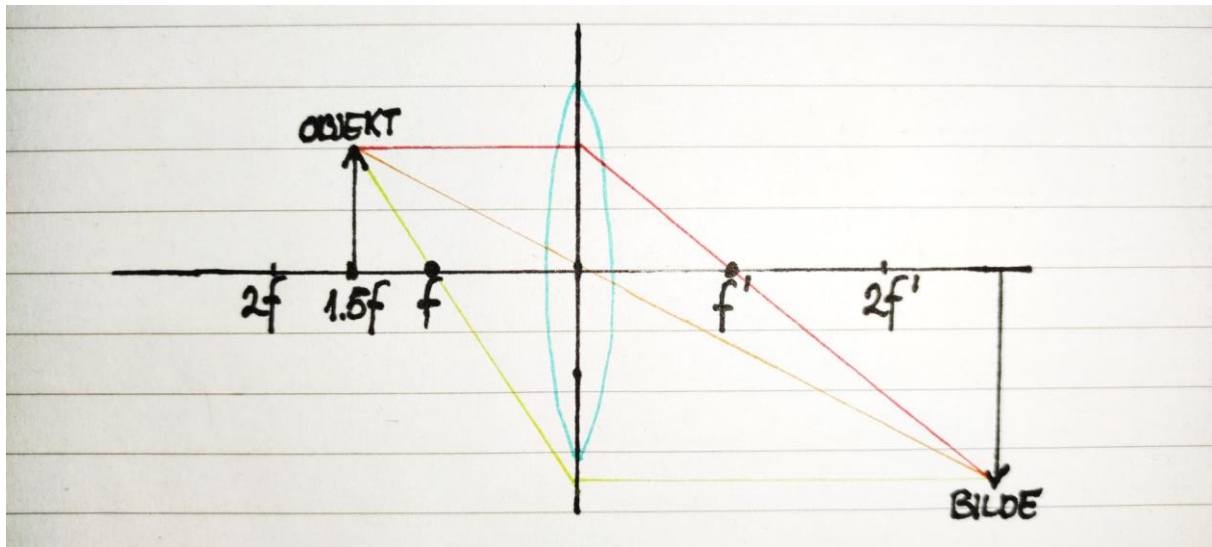 OBJEKT
2f 1.5f f f' 2f'
BILDE